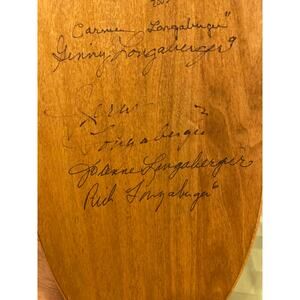 Carmen Longaberger"
Ginny Longaberger 9
Longaberger
Joanne Longaberger
Rich Longaberger 6